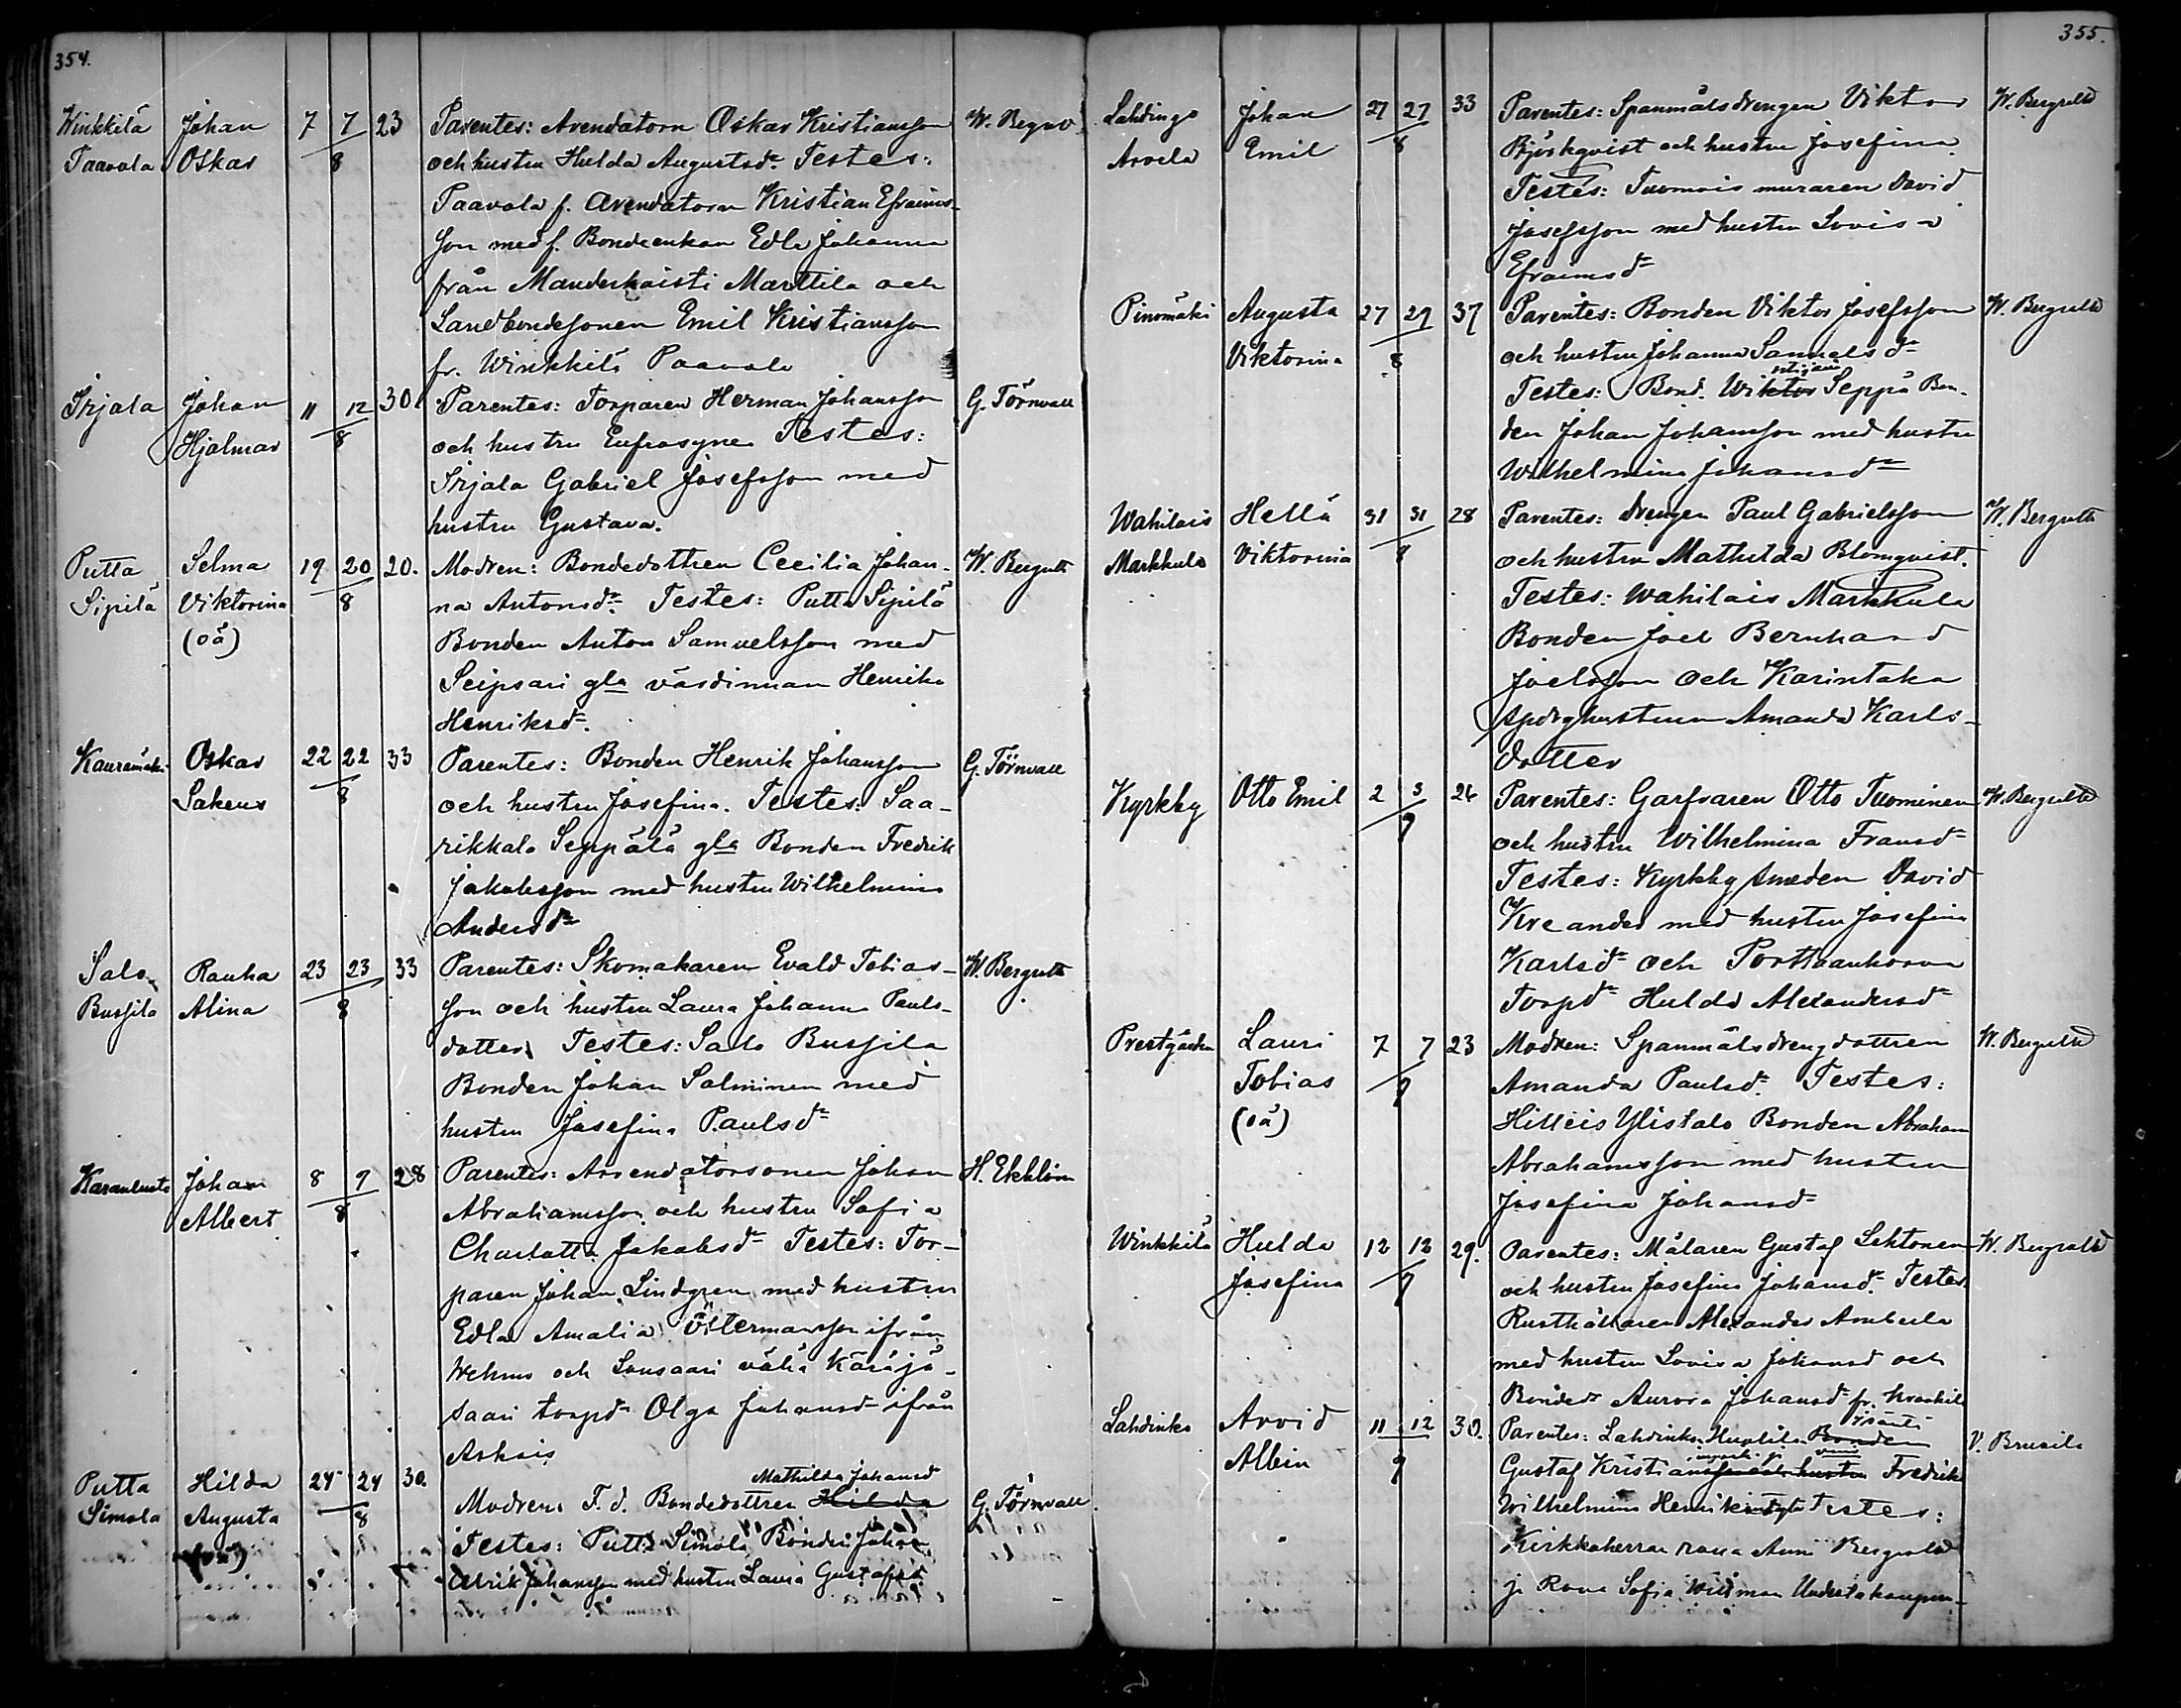 354.
Winkkilä Johan 7 7/8 23 Parentes: Arendatorn Oskar Kristiansson W. Begrol
Paavola Oskar och hustru Hulda Augustsdr Testes:
Paavola f. Arendatorn Kristian Efraims-
son med f. Bondeenkan Edla Johanna
från Manderkaisti Marttila och
Landbondesonen Emil Kristiansson
fr. Winkkilä Paavola
Irjala Johan 11 12/8 30. Parentes: Torparen Herman Johansson G. Törnvall
Hjalmar och hustru Eufrosyne Testes:
Irjala Gabriel Josefsson med
hustru Gustava.
Putta Selma 19 20/8 20. Modren: Bondedottren Cecilia Johan- W. Bergroth
Sipilä Viktorina na Antonsdr Testes: Putta Sipilä
(oä) Bonden Anton Samuelsson med
Seipsari gla värdinnan Henrika
Henriksdr.
Kauramäki Oskar 22 22/8 33 Parentes: Bonden Henrik Johansson G. Törnvall
Sakeus och hustru Josefina. Testes: Saa-
rikkala Seppälä gla Bonden Fredrik
Jakobsson med hustru Wilhelmina
Andersdr
Salo Rauha 23 23/8 33 Parentes: Skomakaren Evald Tobias- W. Bergroth
Bussila Alina son och hustru Laura Johanna Pauls-
dotter Testes: Salo Bussila
Bonden Johan Salminen med
hustru Josefina Paulsdr
Johan 8 9/8 28 Parentes: Arrendatorsonen Johan H. Ekblom
Albert Abrahamsson och hustru Sofia
Charlotta Jakobsdr Testes: Tor-
paren Johan Lindgren med hustru
Edla Amalia Östermansson ifrån
Wehmo och Lousaari vähä Käräjä-
saari torpdr Olga Johansdr ifrån
Askais
Putta Hilda 24 24/8 30. Mathilda Johansd
Simola Augusta Modren: F. d. Bondedottren Hilda G. Törnvall
(oä) Testes: Putta Simola Bonden Johan
Ulrik Johansson med hustru Laura Gustafsd
355.
Lahdingo Johan 27 27/8 33 Parentes: Spanmålsdrengen Viktor W. Bergroth
Arvela Emil Björkqvist och hustru Josefina
Testes: Tuomois muraren David
Josefsson med hustru Lovisa
Efraimsdr
Pinomäki Augusta 27 29/8 37 Parentes: Bonden Viktor Josefsson W. Bergroth
Viktorina och hustru Johanna Samuelsdr
Testes: Bond. Wiktor Seppä Bon-
den Johan Johansson med hustru
Wilhelmina Johansdr
Wahilais Hellä 31 31/8 28 Parentes: Drengen Paul Gabrielsson W. Bergroth
Markkula Viktorina och hustru Mathilda Blomqvist.
Testes: Wahilais Markkula
Bonden Joel Bernhard
Joelsson och Karintaka
hustrun Amanda Karls-
dotter
Kyrkby Otto Emil 2 3/9 26 Parentes: Garfvaren Otto Tuominen W. Bergroth
och hustru Wilhelmina Fransdr
Testes: Kyrkby Smeden David
Kreander med hustru Josefina
Karlsdr och Porttaankorva
Torpdr Hulda Alexandersdr
Prestgården Lauri 7 7/9 23 Modren: Spanmålsdrengdottren W. Bergroth
Tobias Amanda Paulsdr Testes:
(oä) Hilleis Ylistalo Bonden Abraham
Abrahamsson med hustru
Josefina Johansdr
Winkkilä Hulda 12 12/9 29. Parentes: Målaren Gustaf Lehtonen W. Bergroth
Josefina och hustru Josefina Johansdr Testes
Rusthållaren Alexander Amberla
med hustru Lovisa Johansd och
Bondedr Aurora Johansdr fr.
Lahdinko Arvid 11 12/9 30. Parentes: Lahdinko Huolila Bonden isäntä V. Brusila
Albin Gustaf Kristiansson och hustru Fredrika
Wilhelmina Testes:
Kirkkoherran rova Anni Bergroth
ja Rova Sofia Willman